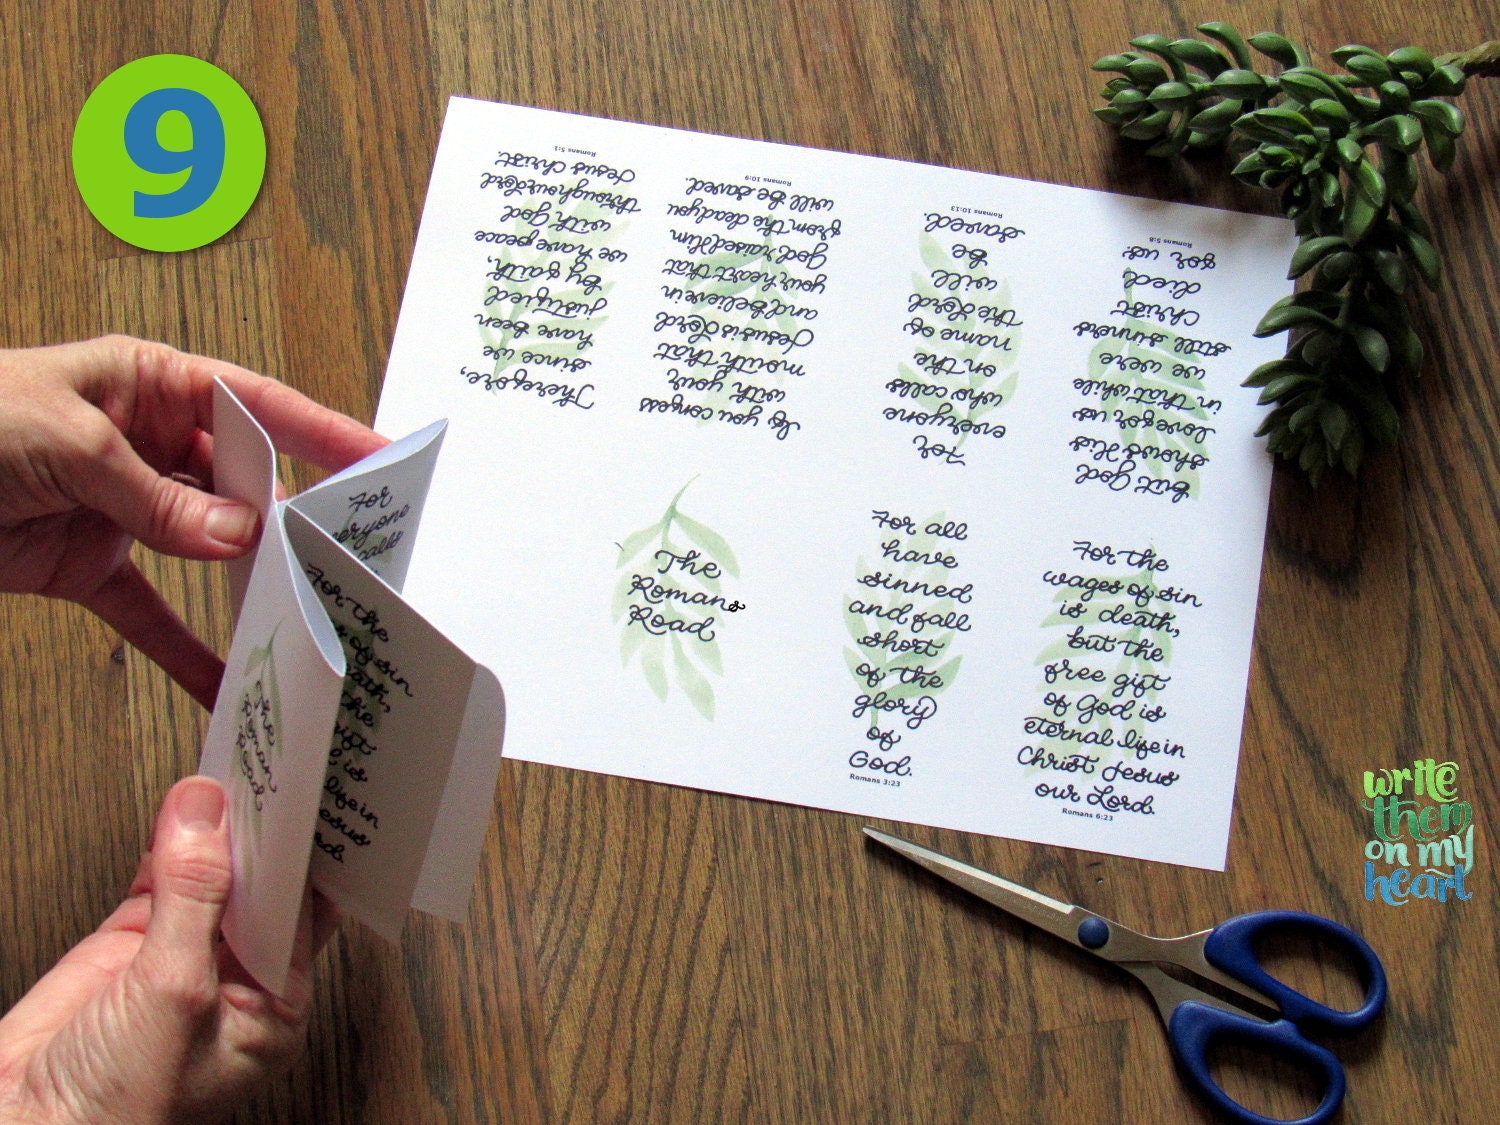 9
Therefore,
since we
have been
justified
by faith,
we have peace
with God
through our Lord
Jesus Christ.
Romans 5:1
If you confess
with your
mouth that
Jesus is Lord
and believe in
your heart that
God raised Him
from the dead you
will be saved.
Romans 10:9
For
everyone
who calls
on the
name of
the Lord
will
be
saved.
Romans 10:13
But God
shows His
love for us
in that while
we were
still sinners
Christ
died
for us.
Romans 5:8
The
Romans
Road
For all
have
sinned
and fall
short
of the
glory
of
God.
Romans 3:23
For the
wages of sin
is death,
but the
free gift
of God is
eternal life in
Christ Jesus
our Lord.
Romans 6:23
For
everyone
calls
For the
of sin
the
is
life in
The
Roman
Road
write
them
on my
heart